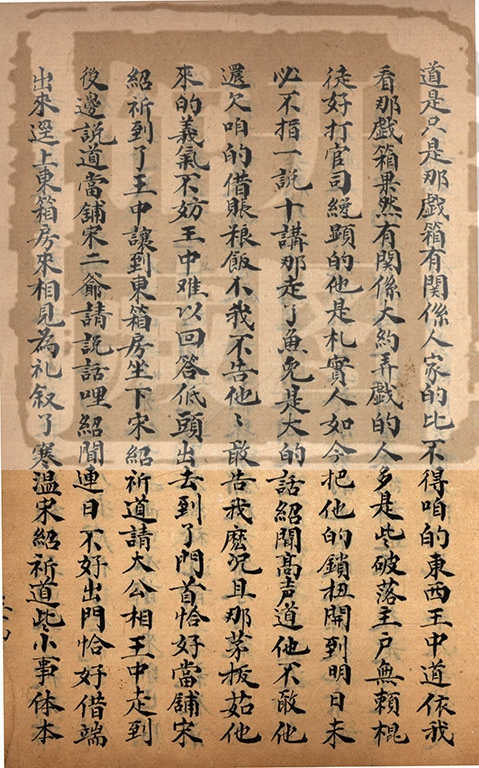 道是只是那戲箱有関係人家的比不得咱的東西王中道依我
看那戲箱果然有関係大約弄戲的人多是些破落主戶無賴棍
徒好打官司纔顕的他是札實人如今把他的鎖扭開到明日未
必不指一説十講那走了魚兔是大的話紹聞髙声道他不敢他
還欠咱的借賬粮飯不我不告他〻敢告我麽况且那茅拔茹他
來的義氣不妨王中难以回答低頭出去到了門首恰好當舖宋
紹祈到了王中讓到東箱房坐下宋紹祈道請大公相王中走到
後邊説道當舖宋二爺請説話哩紹聞連日不好出門恰好借端
出來逕上東箱房來相見為礼叙了寒温宋紹祈道些小事体本